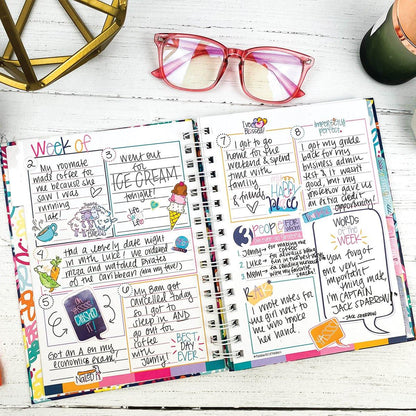 Week of
2 My roommate
made coffee for
me because she
saw I was
running
late!
3 Went out
for
ICE CREAM
tonight!
4 Had a lovely date night
in with Luke! We ordered
pizza and watched Pirates
of the Caribbean (my fave!)
5
Got an A on my
economics exam!
Nailed it
6 My 8am got
cancelled today
so I got to
sleep in and
go out for
coffee
with
Jenny!
BEST
DAY
EVER
7 I got to go
home for the
weekend & spend
time with
family
& friends
HAPPY
PLACE
Blessed
8 imperfectly
perfect
I got my grade
back for my
business admin
test & it wasn't
good, but my
professor gave us
an extra credit
opportunity!
3 PEOPLE
1 Jenny-
2 Luke-
3 Mom-
for making me
coffee
for always
I wrote notes for
my girl went to
me who broke
her hand
WORDS
of the
WEEK
You forgot
one very
important
thing mate,
I'm CAPTAIN
JACK SPARROW!
- JACK SPARROW